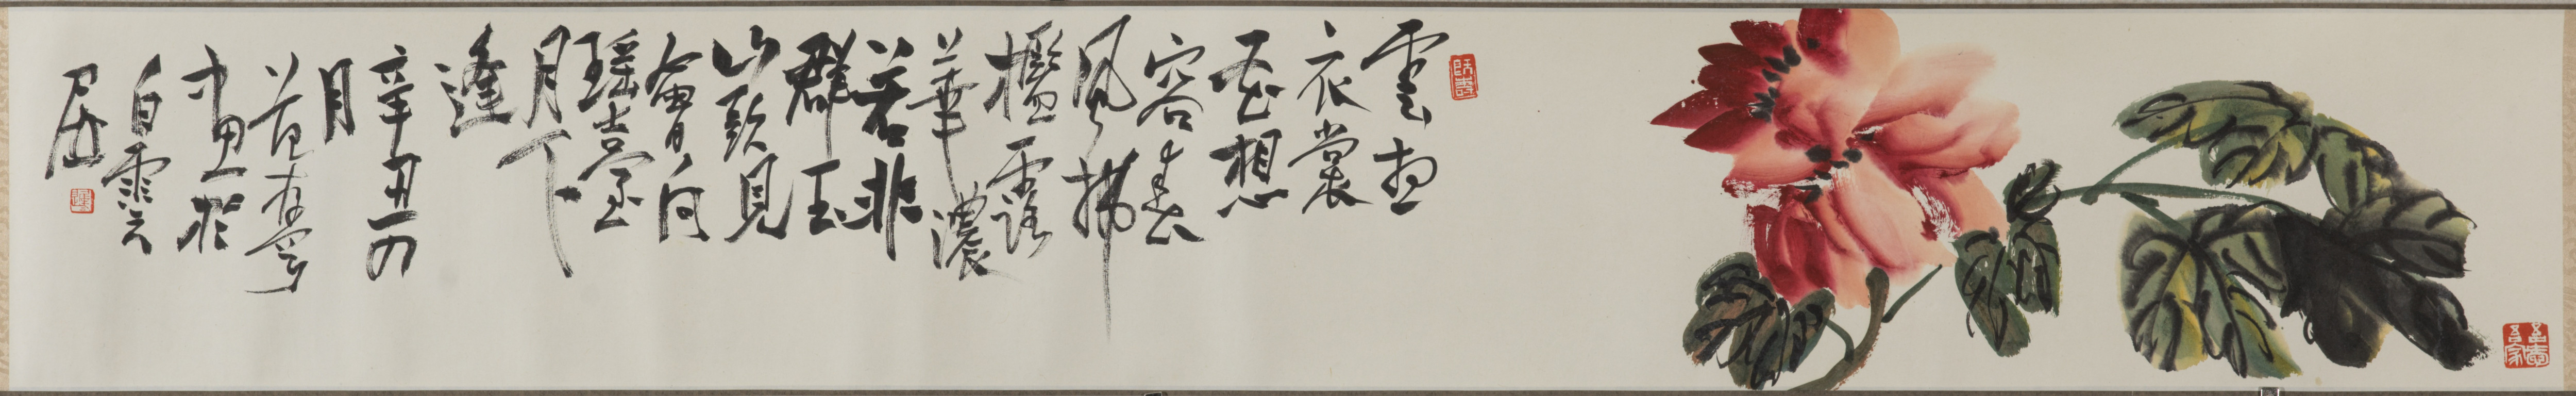 雲想
衣裳
花想
容春
風拂
檻露
華濃
若非
群玉
山頭見
會向
瑤臺
月下
逢
辛丑四
月
畫於
白雲
居